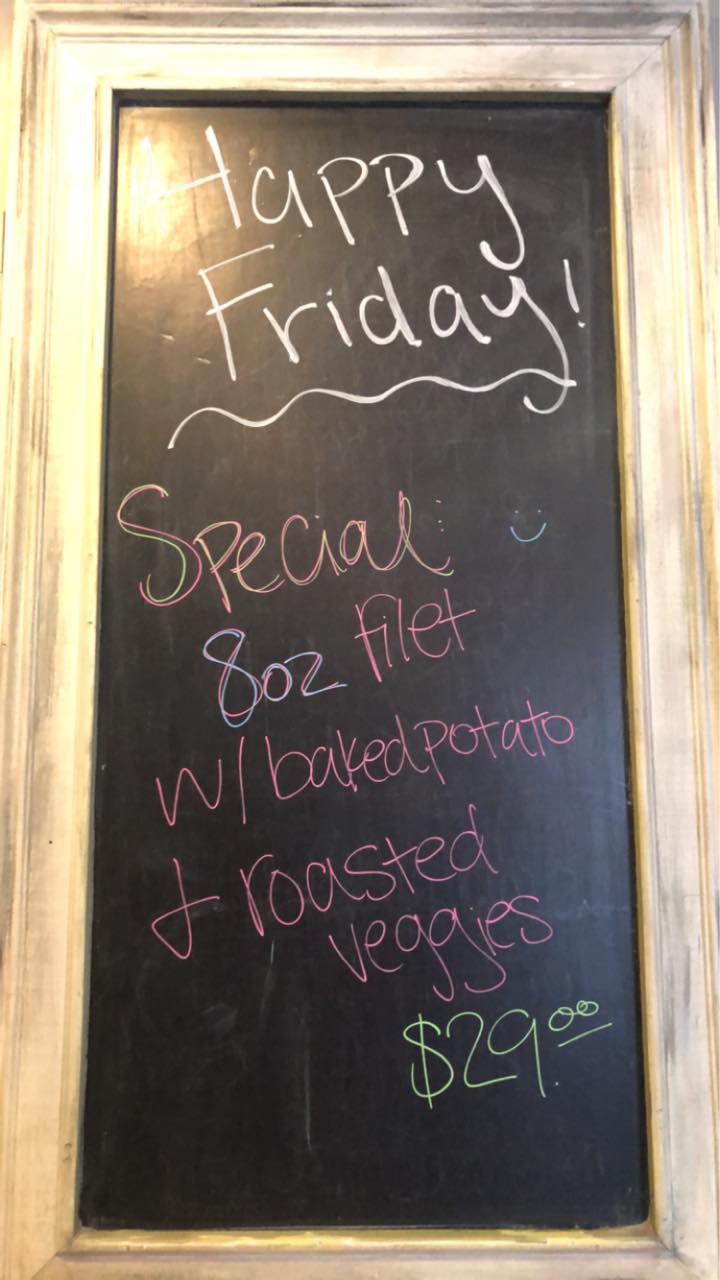 Happy
Friday!
Special:
8oz filet
w/ baked potato
+ roasted
veggies
$29.00